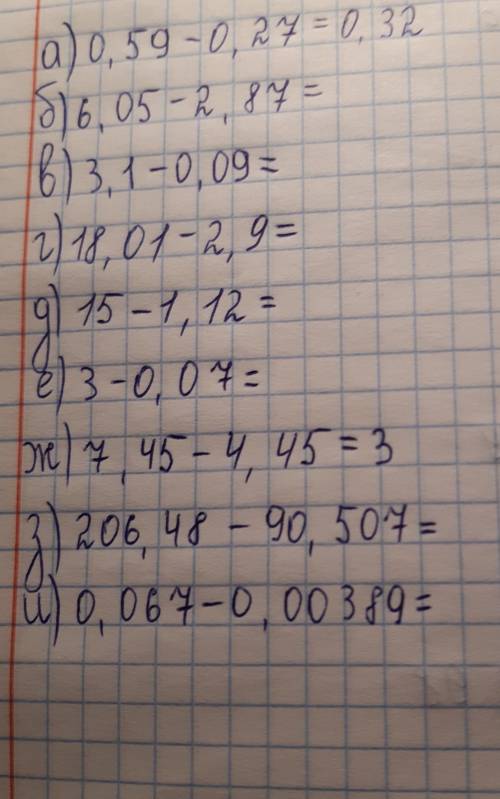 а) 0,59 - 0,27 = 0,32
б) 6,05 - 2,87 =
в) 3,1 - 0,09 =
г) 18,01 - 2,9 =
д) 15 - 1,12 =
е) 3 - 0,07 =
ж) 7,45 - 4,45 = 3
з) 206,48 - 90,507 =
и) 0,067 - 0,00389 =